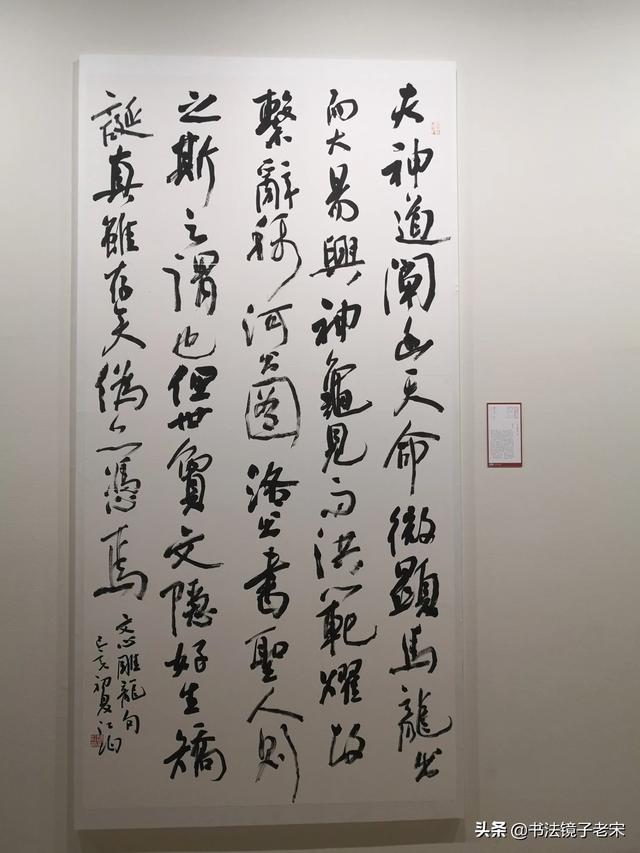 夫神道闡幽天命微顯馬龍出
而大易興神龜見而洪範耀故
繫辭稱河出圖洛出書聖人則
之斯之謂也但世夐文隱好生矯
誕真雖存矣偽亦憑焉
文心雕龍句
己亥初夏江
头条 @书法镜子老宋